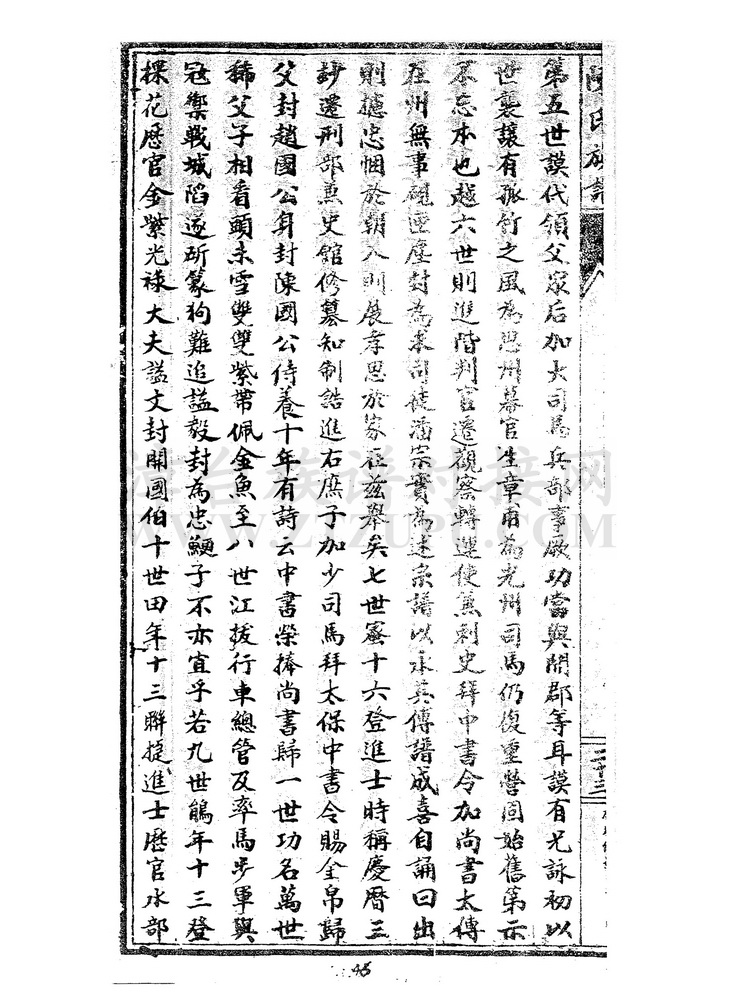 陳氏族譜
第五世謨代領父眾后加大司馬兵部事厥功當與開郡等耳謨有兄詠初以
世襲讓有孤竹之風為恩州幕官生章甫為光州司馬仍復重營固始舊第示
不忘本也越六世則進階判官遷觀察轉運使兼刺史拜中書令加尚書太傅
在州無事硯匣塵封為本司徒潘宗實為述宗譜以永其傳譜成喜自誦曰出
則攄忠悃於朝入則展孝思於家在茲舉矣七世蜜十六登進士時稱慶曆三
鈔遷刑部兼史館修纂知制誥進右庶子加少司馬拜太保中書令賜金帛歸
父封趙國公身封陳國公侍養十年有詩云中書榮捧尚書歸一世功名萬世
稀父子相看頭未雪雙雙紫帶佩金魚至八世江拔行車總管及率馬步軍與
寇禦戰城陷遂斫篆狗難追謚毅封為忠鯁子不亦宜乎若九世鵤年十三登
探花歷官金紫光祿大夫謚文封開國伯十世田年十三聯捷進士歷官水部
二十三
45
河台族谱对接网
WWW.ZTZUPU.COM